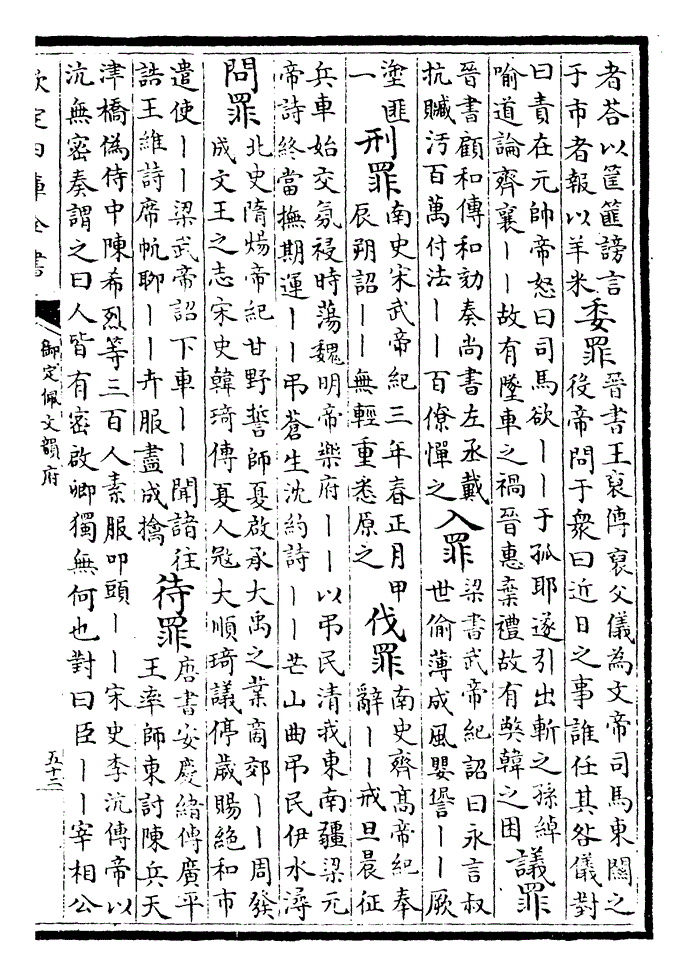 者荅以筐篚謗言
于市者報以羊米
委罪
晉書王裒傳裒父儀為文帝司馬東關之
役帝問于衆曰近日之事誰任其咎儀對
曰責在元帥帝怒曰司馬欲丨丨于孤耶遂引出斬之孫綽
喻道論齊襄丨丨故有墜車之禍晉惠棄禮故有弊韓之困
議罪
晉書顧和傳和劾奏尚書左丞戴
抗贓汚百萬付法丨丨百僚憚之
入罪
梁書武帝紀詔曰永言叔
世偷薄成風嬰諐丨丨厥
塗匪
一
刑罪
南史宋武帝紀三年春正月甲
辰朔詔丨丨無輕重悉原之
伐罪
南史齊髙帝紀奉
辭丨丨戒旦晨征
兵車始交氛祲時蕩魏明帝樂府丨丨以弔民清我東南疆梁元
帝詩終當撫期運丨丨弔蒼生沈約詩丨丨芒山曲弔民伊水潯
問罪
北史隋煬帝紀甘野誓師夏啟承大禹之業商郊丨丨周發
成文王之志宋史韓琦傳夏人冦大順琦議停歲賜絶和市
遣使丨丨梁武帝詔下車丨丨聞諸往
誥王維詩席帆聊丨丨卉服盡成擒
待罪
唐書安慶緒傳廣平
王率師東討陳兵天
津橋偽侍中陳希烈等三百人素服叩頭丨丨宋史李沆傳帝以
沆無密奏謂之曰人皆有密啟卿獨無何也對曰臣丨丨宰相公
欽定四庫全書
御定佩文韻府
五十二